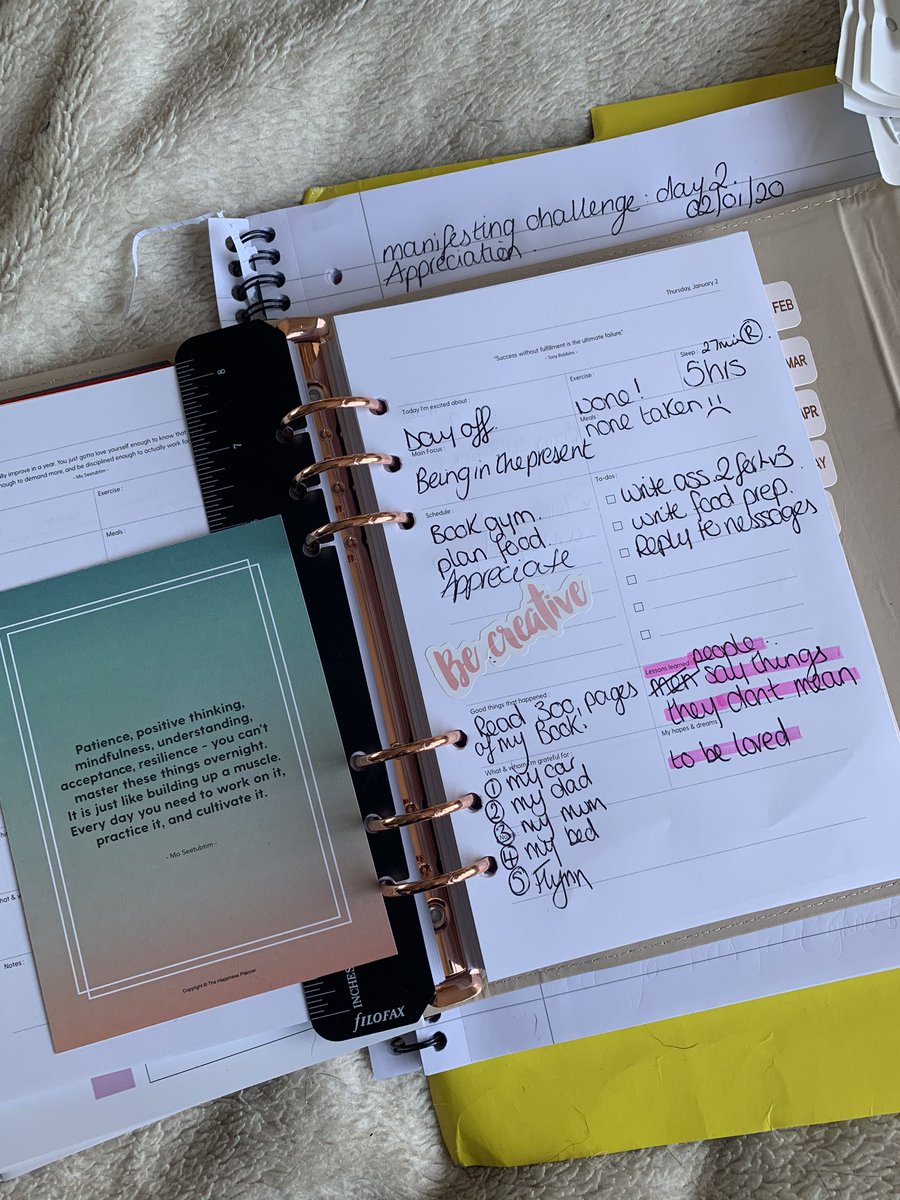 manifesting challenge: day 2.
02/01/20
Appreciation.
Thursday, January 2
"Success without fulfillment is the ultimate failure"
- Tony Robbins -
Today I'm excited about :
Day off.
Exercise :
Done!
Sleep :
27min R
5hrs
Main Focus :
Being in the present
Meals :
none taken
Schedule :
Book gym.
plan food.
Appreciate
Be creative
To-dos :
write ass. 2 for
write food prep.
Reply to messages
Good things that happened :
Read 300 pages
of my book!
Lessons learned :
people
men say things
they don't mean
My hopes & dreams
to be loved
What & whom I'm grateful for :
① my car
② my dad
③ my mum
④ my bed
⑤ Flynn
FEB
MAR
APR
AY
8
7
INCHES
fILOFAX
ally improve in a year. You just gotta love yourself enough to know that
nough to demand more, and be disciplined enough to actually work for
- Mo Seetubtim -
Exercise :
Meals :
Patience, positive thinking,
mindfulness, understanding,
acceptance, resilience - you can't
master these things overnight.
It is just like building up a muscle.
Every day you need to work on it,
practice it, and cultivate it.
- Mo Seetubtim -
Copyright © The Happiness Planner
hat & w
Notes :